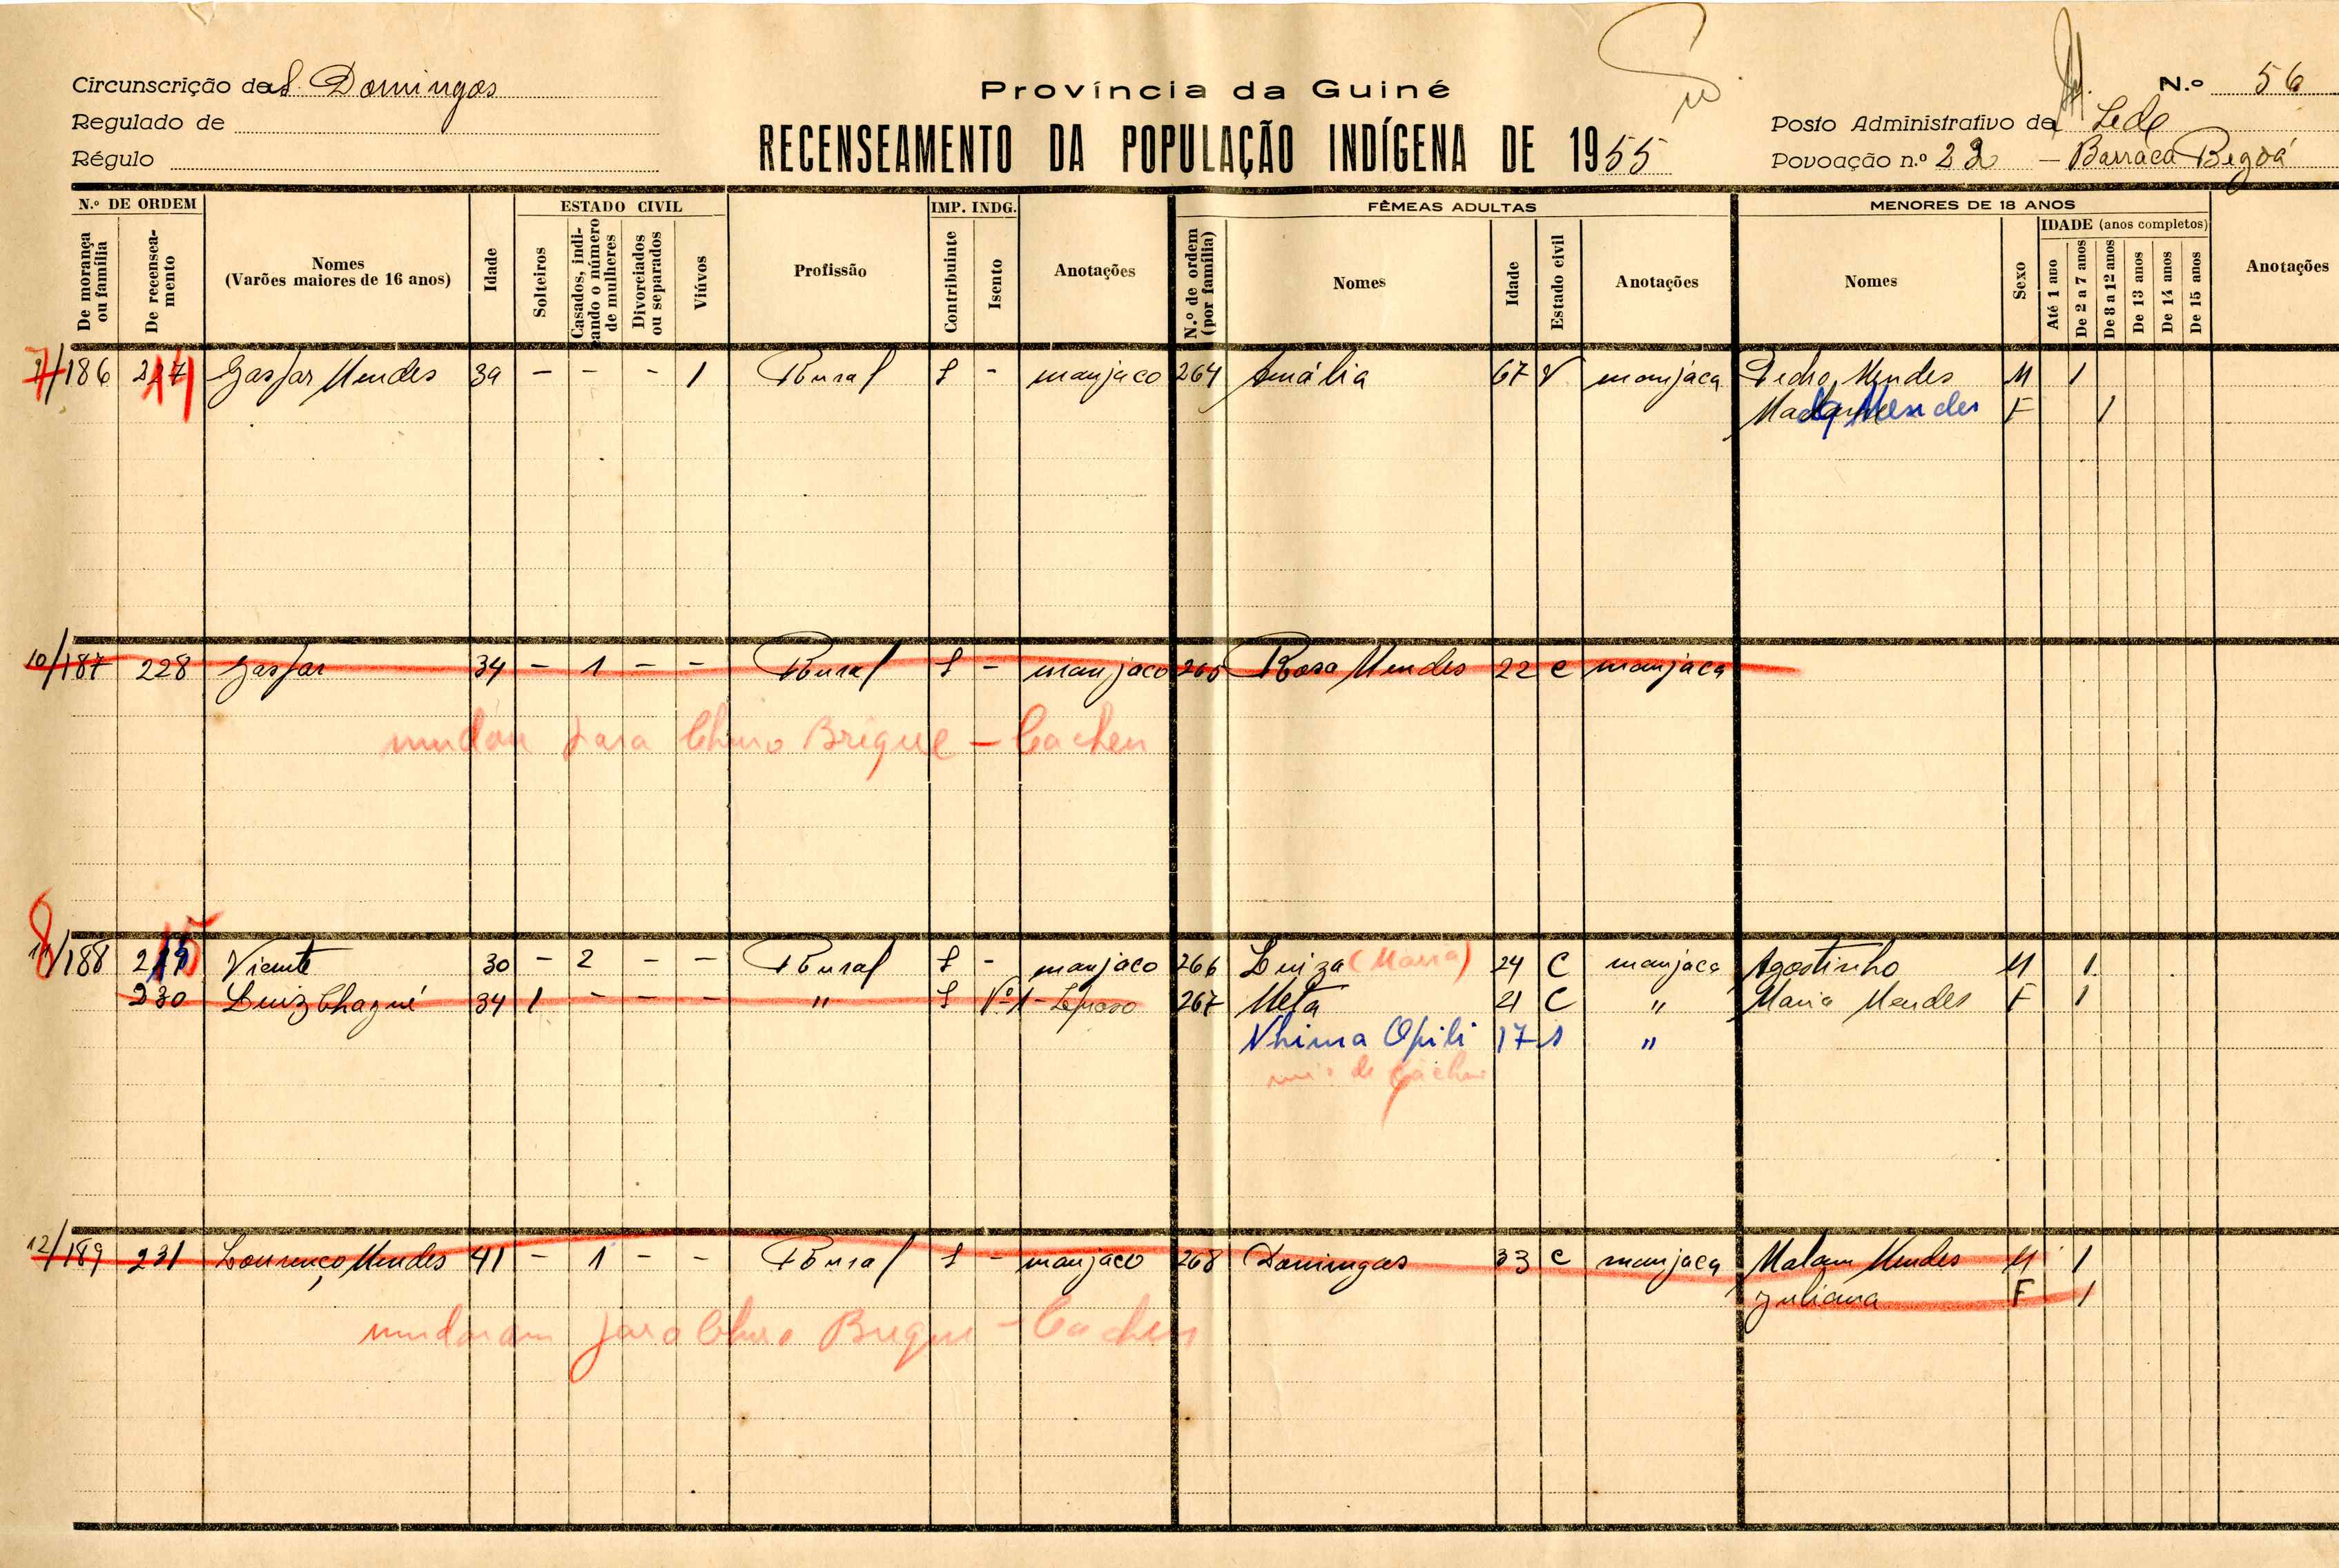 Circunscrição de S. Domingos
Regulado de
Régulo
Província da Guiné
RECENSEAMENTO DA POPULAÇÃO INDÍGENA DE 1955
N.º 56
Posto Administrativo da Sede
Povoação n.º 22 — Barraca Begoá
N.º DE ORDEM
De morança ou família
De recenseamento
Nomes
(Varões maiores de 16 anos)
Idade
ESTADO CIVIL
Solteiros
Casados, indicando o número de mulheres
Divorciados ou separados
Viúvos
Profissão
IMP. INDG.
Contribuinte
Isento
Anotações
N.º de ordem (por família)
FÊMEAS ADULTAS
Nomes
Idade
Estado civil
Anotações
MENORES DE 18 ANOS
Nomes
Sexo
IDADE (anos completos)
Até 1 ano
De 2 a 7 anos
De 8 a 12 anos
De 13 anos
De 14 anos
De 15 anos
Anotações
7/186 227 14 Gaspar Mendes 39 - - - 1 Rural S - manjaco 264 Amália 67 V manjaca Pedro Mendes M 1
Mendes F 1
10/187 228 Gaspar 34 - 1 - - Rural S - manjaco 265 Rosa Mendes 22 C manjaca
mudou para Churo Brique - Cacheu
8 /188 15 Vicente 30 - 2 - - Rural S - manjaco 266 Luiza (Maria) 24 C manjaca Agostinho M 1
230 Luiz Chagué 34 1 - - - " S Nº 1 - Leproso 267 Meta 21 C " Maria Mendes F 1
Nhima Opili 17 S "
de Cacheu
12/189 231 Lourenço Mendes 41 - 1 - - Rural S - manjaco 268 Domingas 33 C manjaca Malam Mendes M 1
Juliana F 1
mudaram para Churo Brique - Cacheu